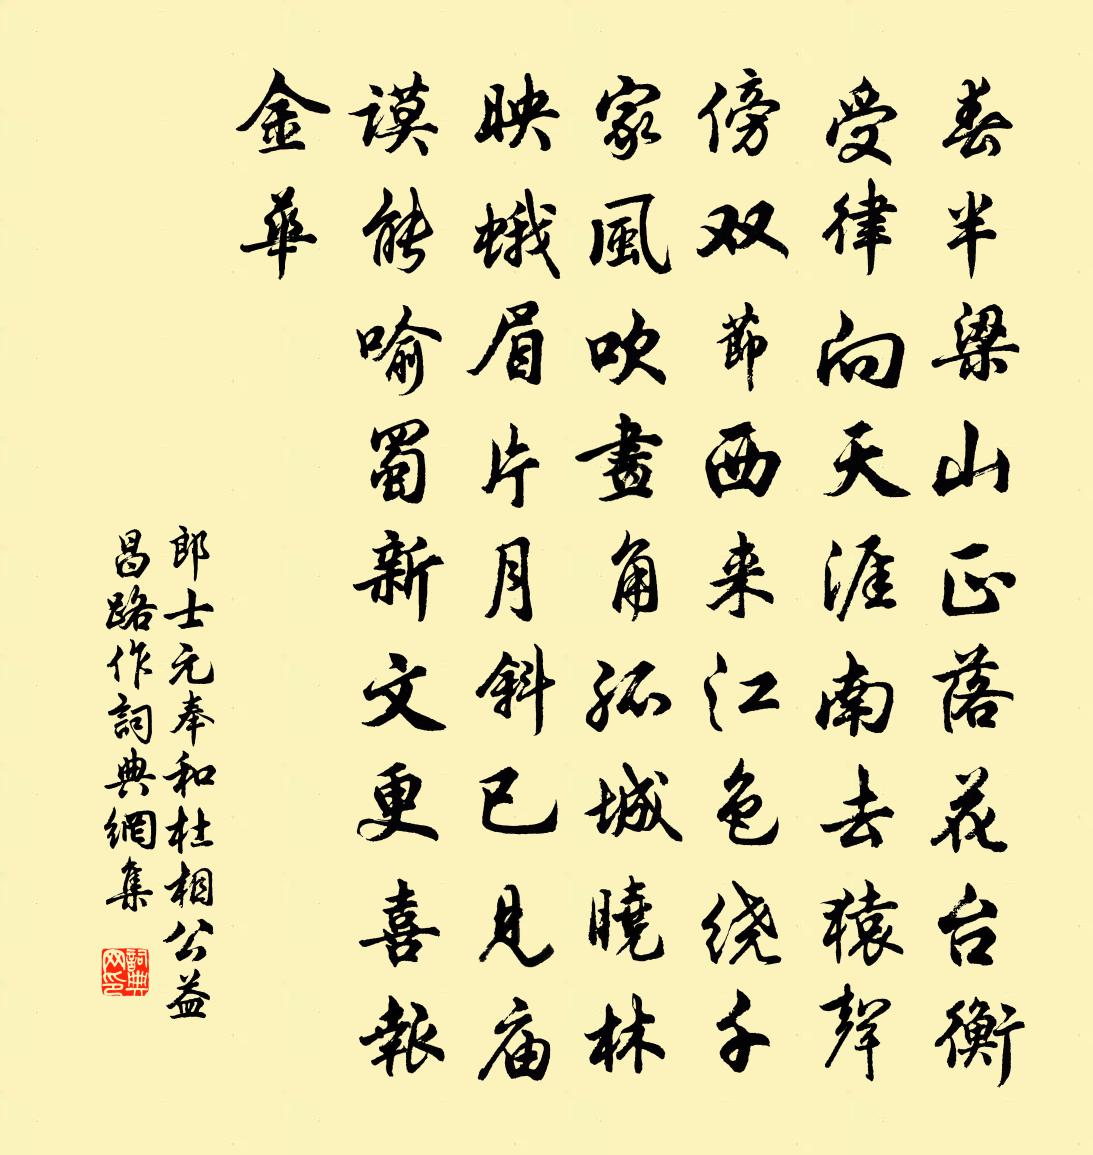 春半梁山正落花台衡
受律向天涯南去猿声
傍双節西来江色绕千
家風吹畫角孤城曉林
映蛾眉片月斜已見庙
谟能喻蜀新文更喜報
金華
郎士元奉和杜相公益
昌路作詞典網集
詞典网印